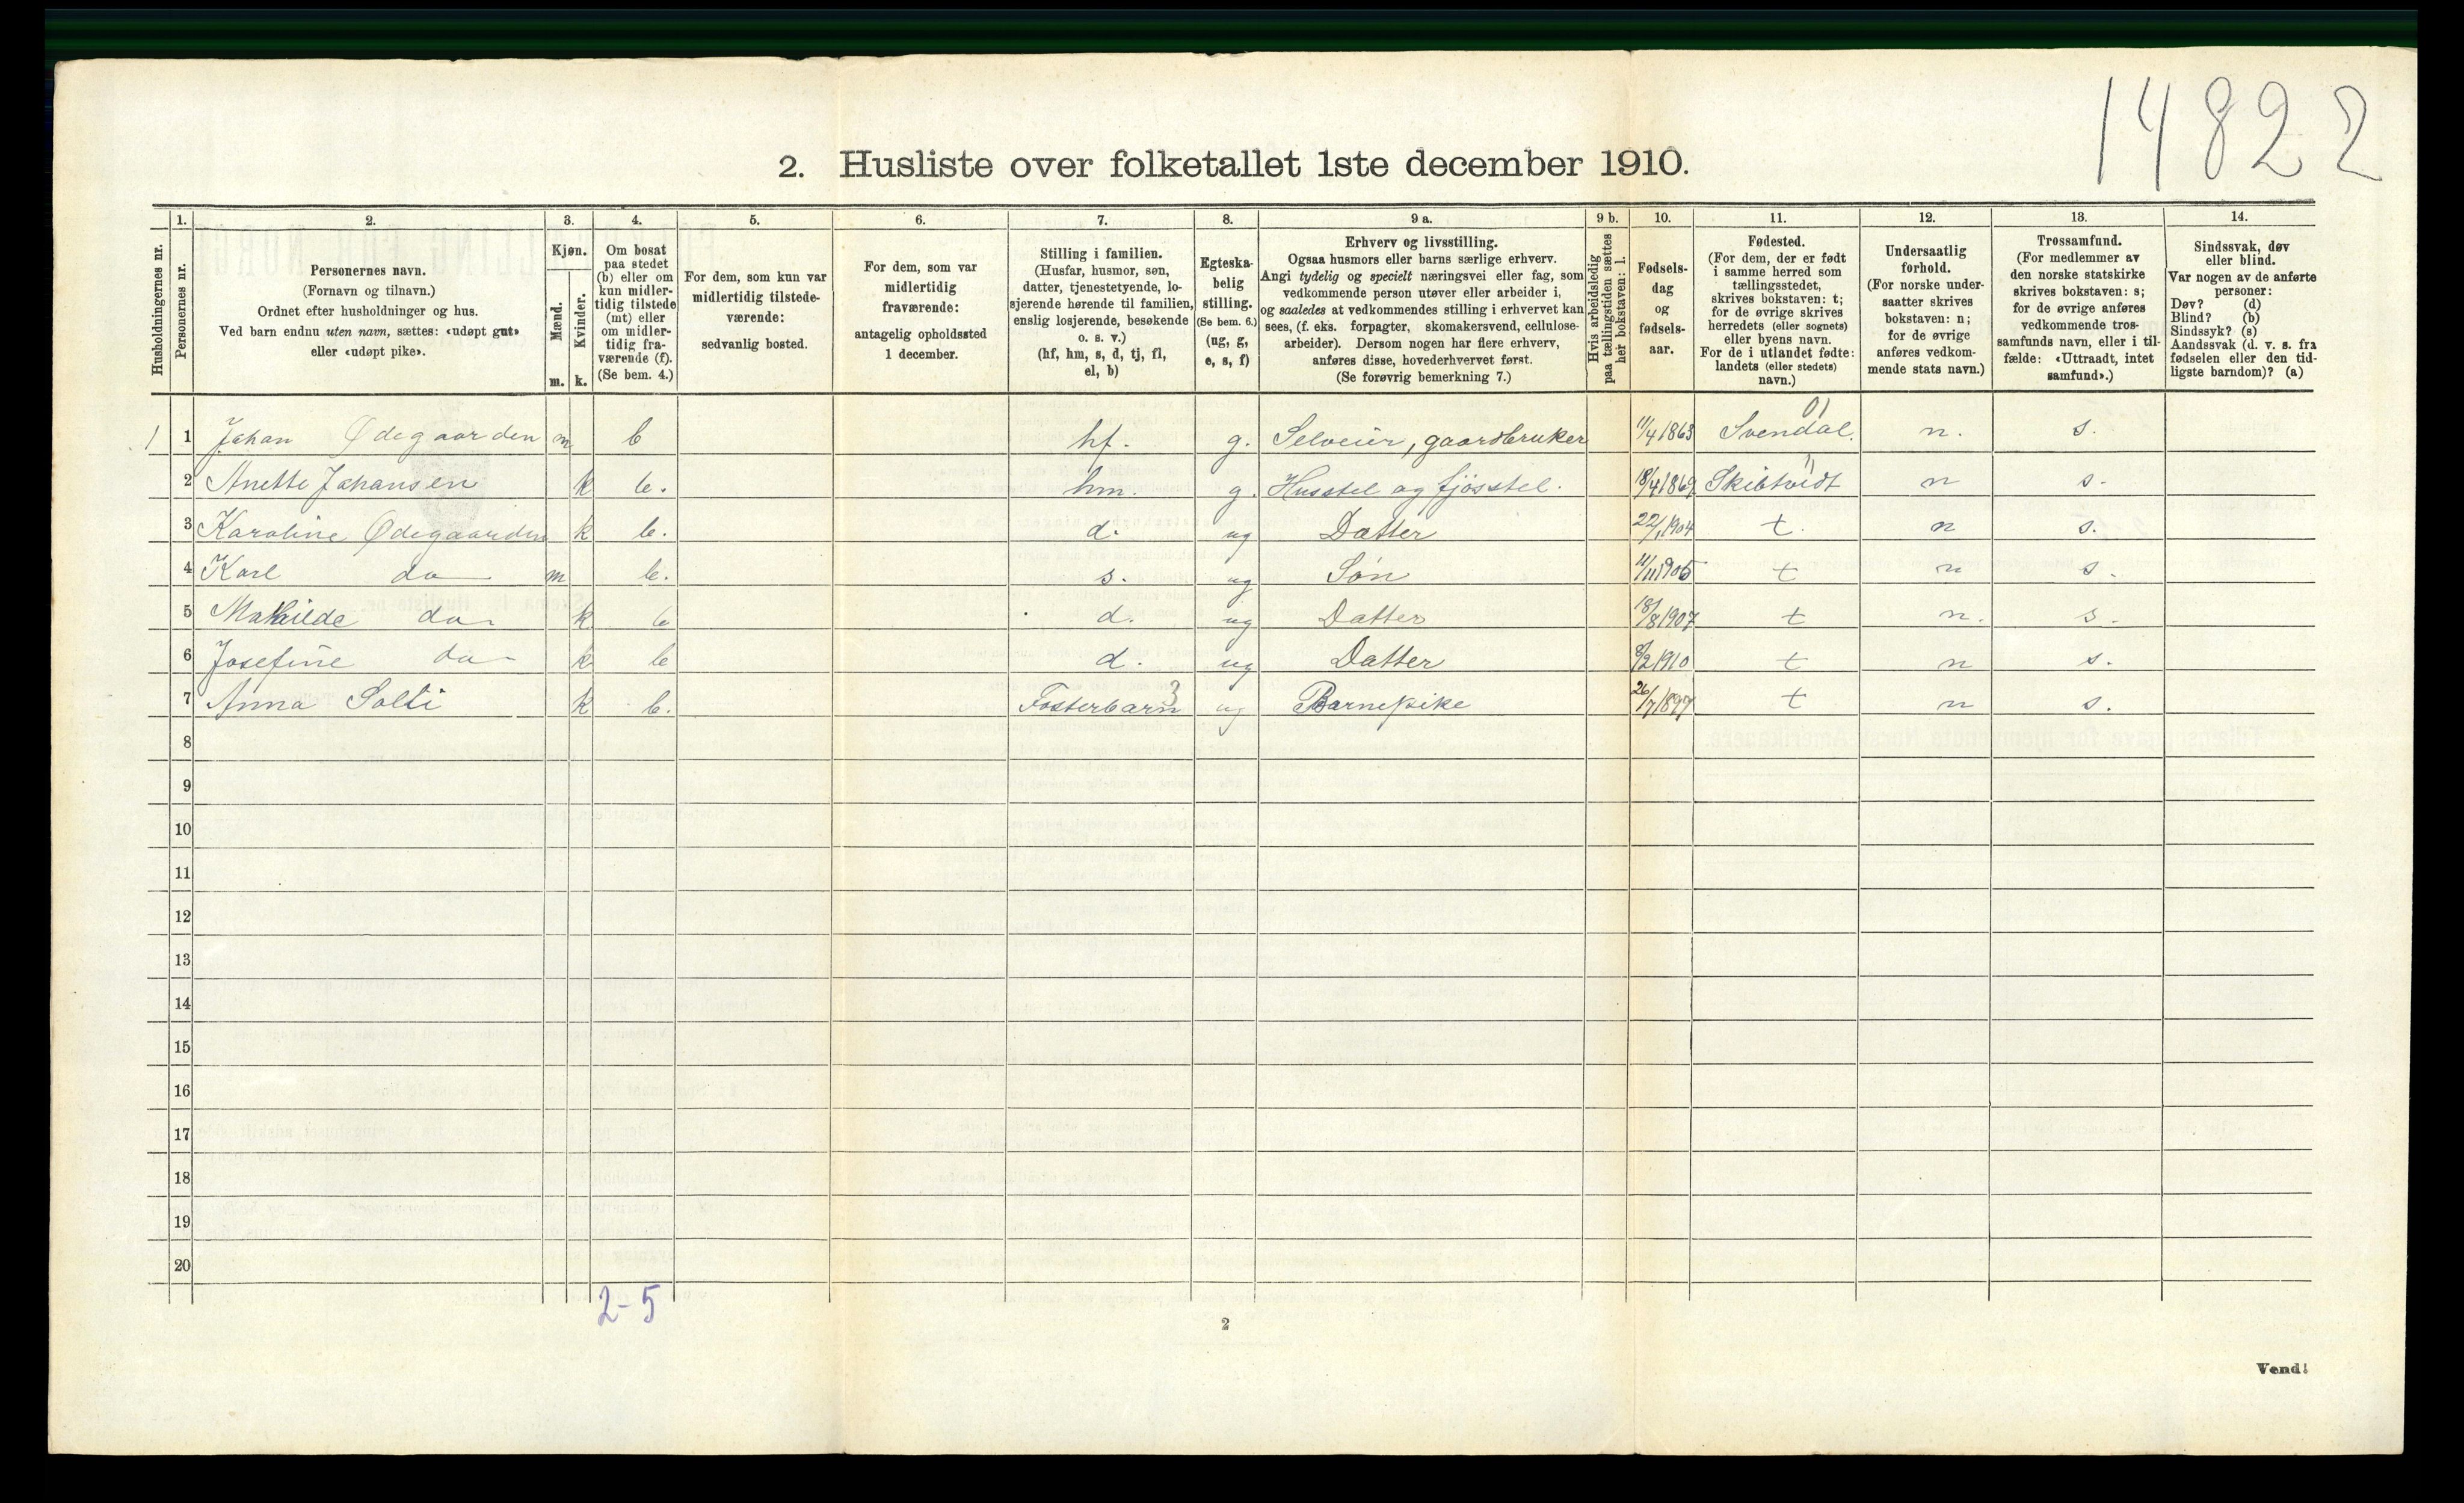 14822
2. Husliste over folketallet 1ste december 1910.
Husholdningernes nr.
1.
Personernes nr.
2.
Personernes navn.
(Fornavn og tilnavn.)
Ordnet efter husholdninger og hus.
Ved barn endnu uten navn, sættes: «udøpt gut»
eller «udøpt pike».
3.
Kjøn.
Mænd.
Kvinder.
m. k.
4.
Om bosat
paa stedet
(b) eller om
kun midler-
tidig tilstede
(mt) eller
om midler-
tidig fra-
værende (f).
(Se bem. 4.)
5.
For dem, som kun var
midlertidig tilstede-
værende:
sedvanlig bosted.
6.
For dem, som var
midlertidig
fraværende:
antagelig opholdssted
1 december.
7.
Stilling i familien.
(Husfar, husmor, søn,
datter, tjenestetyende, lo-
sjerende hørende til familien,
enslig losjerende, besøkende
o. s. v.)
(hf, hm, s, d, tj, fl,
el, b)
8.
Egteska-
belig
stilling.
(Se bem. 6.)
(ug, g,
e, s, f)
9 a.
Erhverv og livsstilling.
Ogsaa husmors eller barns særlige erhverv.
Angi tydelig og specielt næringsvei eller fag, som
vedkommende person utøver eller arbeider i,
og saaledes at vedkommendes stilling i erhvervet kan
sees, (f. eks. forpagter, skomakersvend, cellulose-
arbeider). Dersom nogen har flere erhverv,
anføres disse, hovederhvervet først.
(Se forøvrig bemerkning 7.)
9 b.
Hvis arbeidsledig
paa tællingstiden sættes
her bokstaven: l.
10.
Fødsels-
dag
og
fødsels-
aar.
11.
Fødested.
(For dem, der er født
i samme herred som
tællingsstedet,
skrives bokstaven: t;
for de øvrige skrives
herredets (eller sognets)
eller byens navn.
For de i utlandet fødte:
landets (eller stedets)
navn.)
12.
Undersaatlig
forhold.
(For norske under-
saatter skrives
bokstaven: n;
for de øvrige
anføres vedkom-
mende stats navn.)
13.
Trossamfund.
(For medlemmer av
den norske statskirke
skrives bokstaven: s;
for de øvrige anføres
vedkommende tros-
samfunds navn, eller i til-
fælde: «Uttraadt, intet
samfund».)
14.
Sindssvak, døv
eller blind.
Var nogen av de anførte
personer:
Døv? (d)
Blind? (b)
Sindssyk? (s)
Aandssvak (d. v. s. fra
fødselen eller den tid-
ligste barndom)? (a)
01
1 1 Johan Ødegaarden m b hf. g. Selveier, gaardbruker 11/4 1863 Svendal. n. s.
2 Anette Johansen k b. hm. g. Husstel og fjøsstel. 18/4 1869 Skibtvedt n s.
3 Karoline Ødegaarden k b. d. ug Datter 22/1 1904 t. n s.
4 Karl do m b. s. ug Søn 11/11 1905 t n s.
5 Mathilde do k b d. ug Datter 18/8 1907 t n. s.
6 Josefine do k b d. ug Datter 8/2 1910 t n s.
3
7 Anna Solli k b. Fosterbarn ug Barnepike 26/7 1897 t n s.
8
9
10
11
12
13
14
15
16
17
18
19
20
2-5
2
Vend!